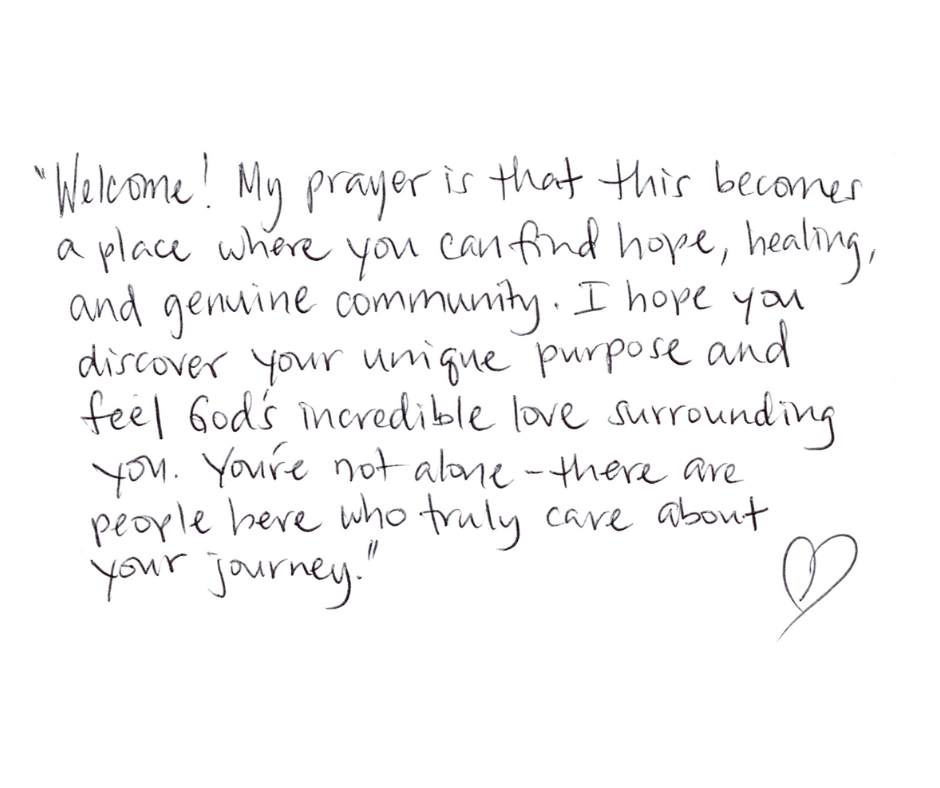 "Welcome! My prayer is that this becomes
a place where you can find hope, healing,
and genuine community. I hope you
discover your unique purpose and
feel God's incredible love surrounding
you. You're not alone – there are
people here who truly care about
your journey."